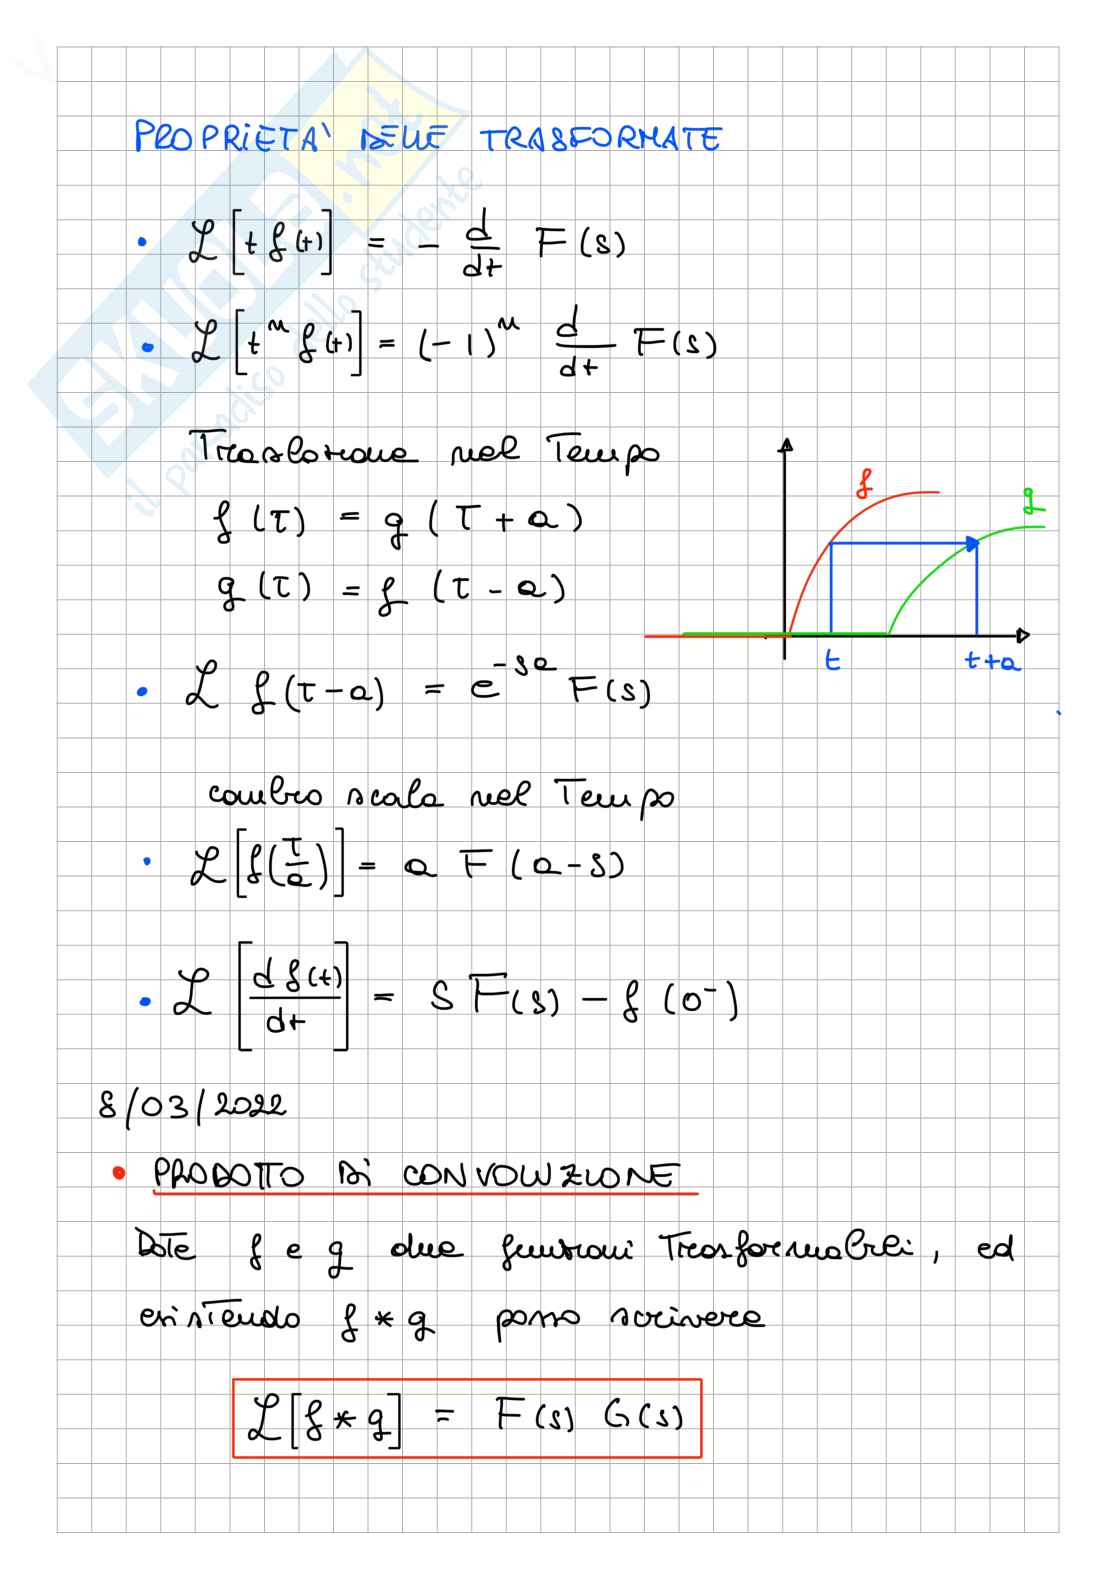 PROPRIETA' DELLE TRASFORMATE
• ℒ[t f(t)] = - d/dt F(s)
• ℒ[t^n f(t)] = (-1)^n d/dt F(s)
Traslazione nel Tempo
f(τ) = g(τ+a)
g(τ) = f(τ-a)
f
g
t
t+a
• ℒ f(τ-a) = e^-sa F(s)
cambio scala nel Tempo
• ℒ[f(τ/a)] = a F(a-s)
• ℒ[d f(t)/dt] = s F(s) - f(0^-)
8/03/2022
• PRODOTTO DI CONVOLUZIONE
Date f e g due funzioni Trasformabili, ed
esistendo f * g posso scrivere
ℒ[f * g] = F(s) G(s)
SKUOLA.net
il paradiso dello studente